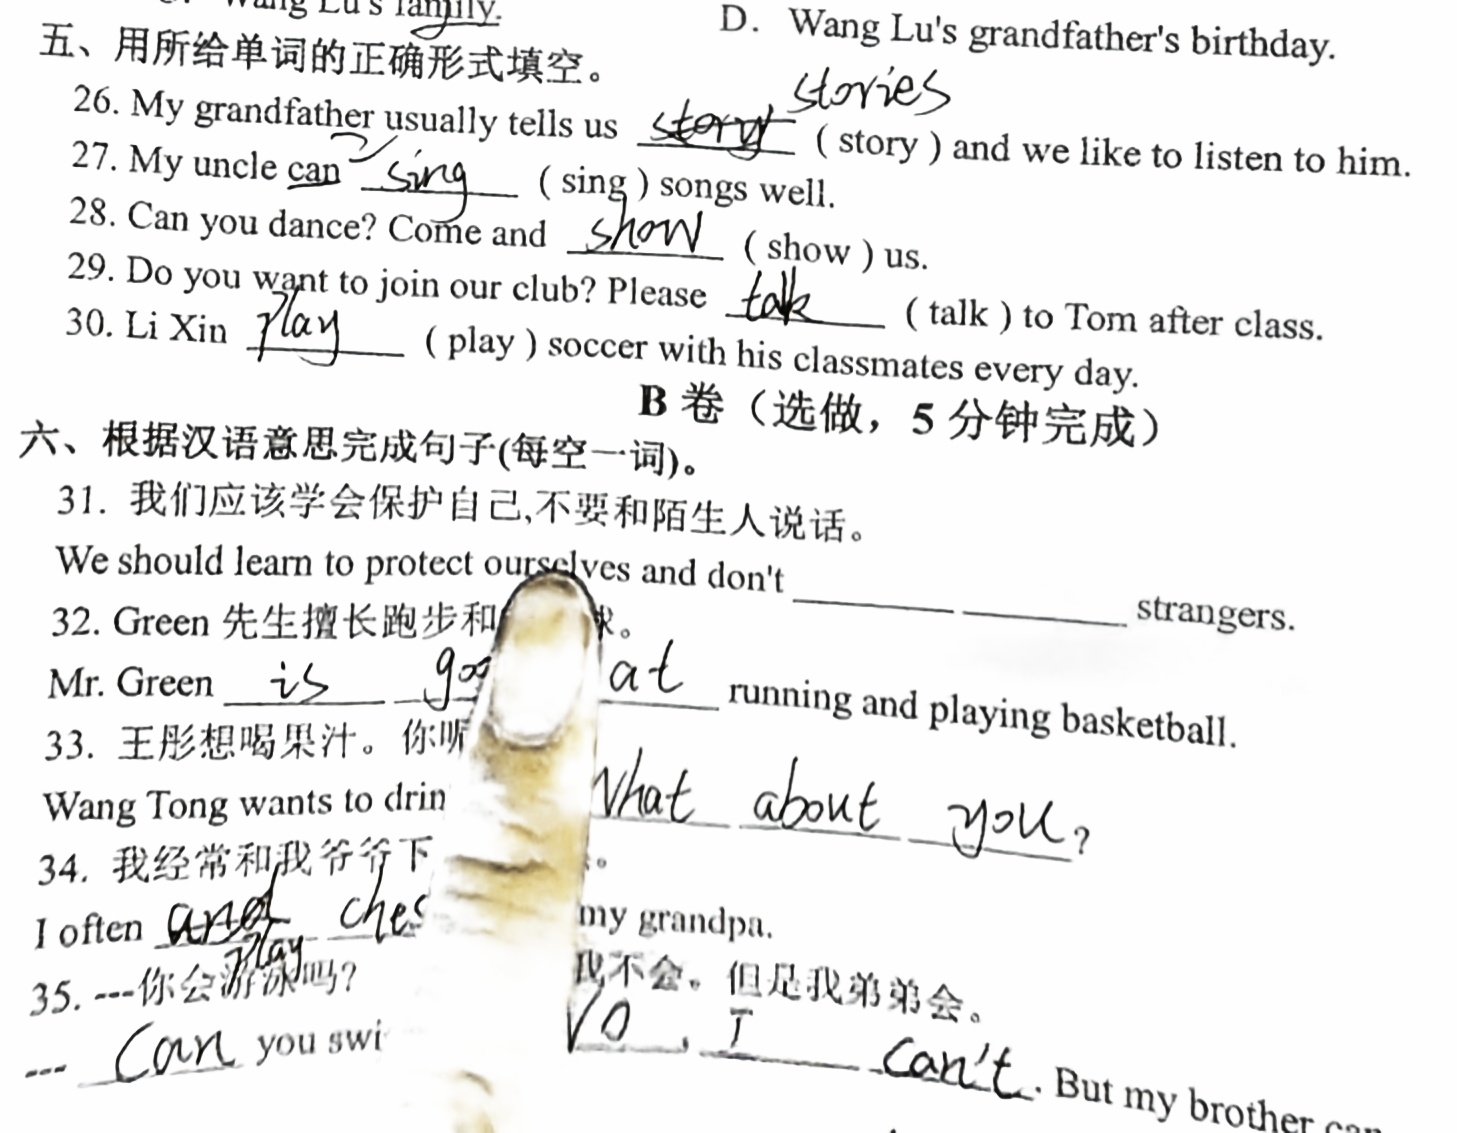 Wang Lu's family.
D. Wang Lu's grandfather's birthday.
五、用所给单词的正确形式填空。
stories
26. My grandfather usually tells us story ( story ) and we like to listen to him.
27. My uncle can sing ( sing ) songs well.
28. Can you dance? Come and show ( show ) us.
29. Do you want to join our club? Please talk ( talk ) to Tom after class.
30. Li Xin play ( play ) soccer with his classmates every day.
B 卷（选做，5 分钟完成）
六、根据汉语意思完成句子(每空一词)。
31. 我们应该学会保护自己,不要和陌生人说话。
We should learn to protect ourselves and don't ______ ______ strangers.
32. Green 先生擅长跑步和 球。
Mr. Green is at running and playing basketball.
33. 王彤想喝果汁。你呢
Wang Tong wants to What about you?
34. 我经常和我爷爷下 。
I often and my grandpa.
play
35. ---你会游泳吗? 我不会。但是我弟弟会。
--- Can you , I can't. But my brother